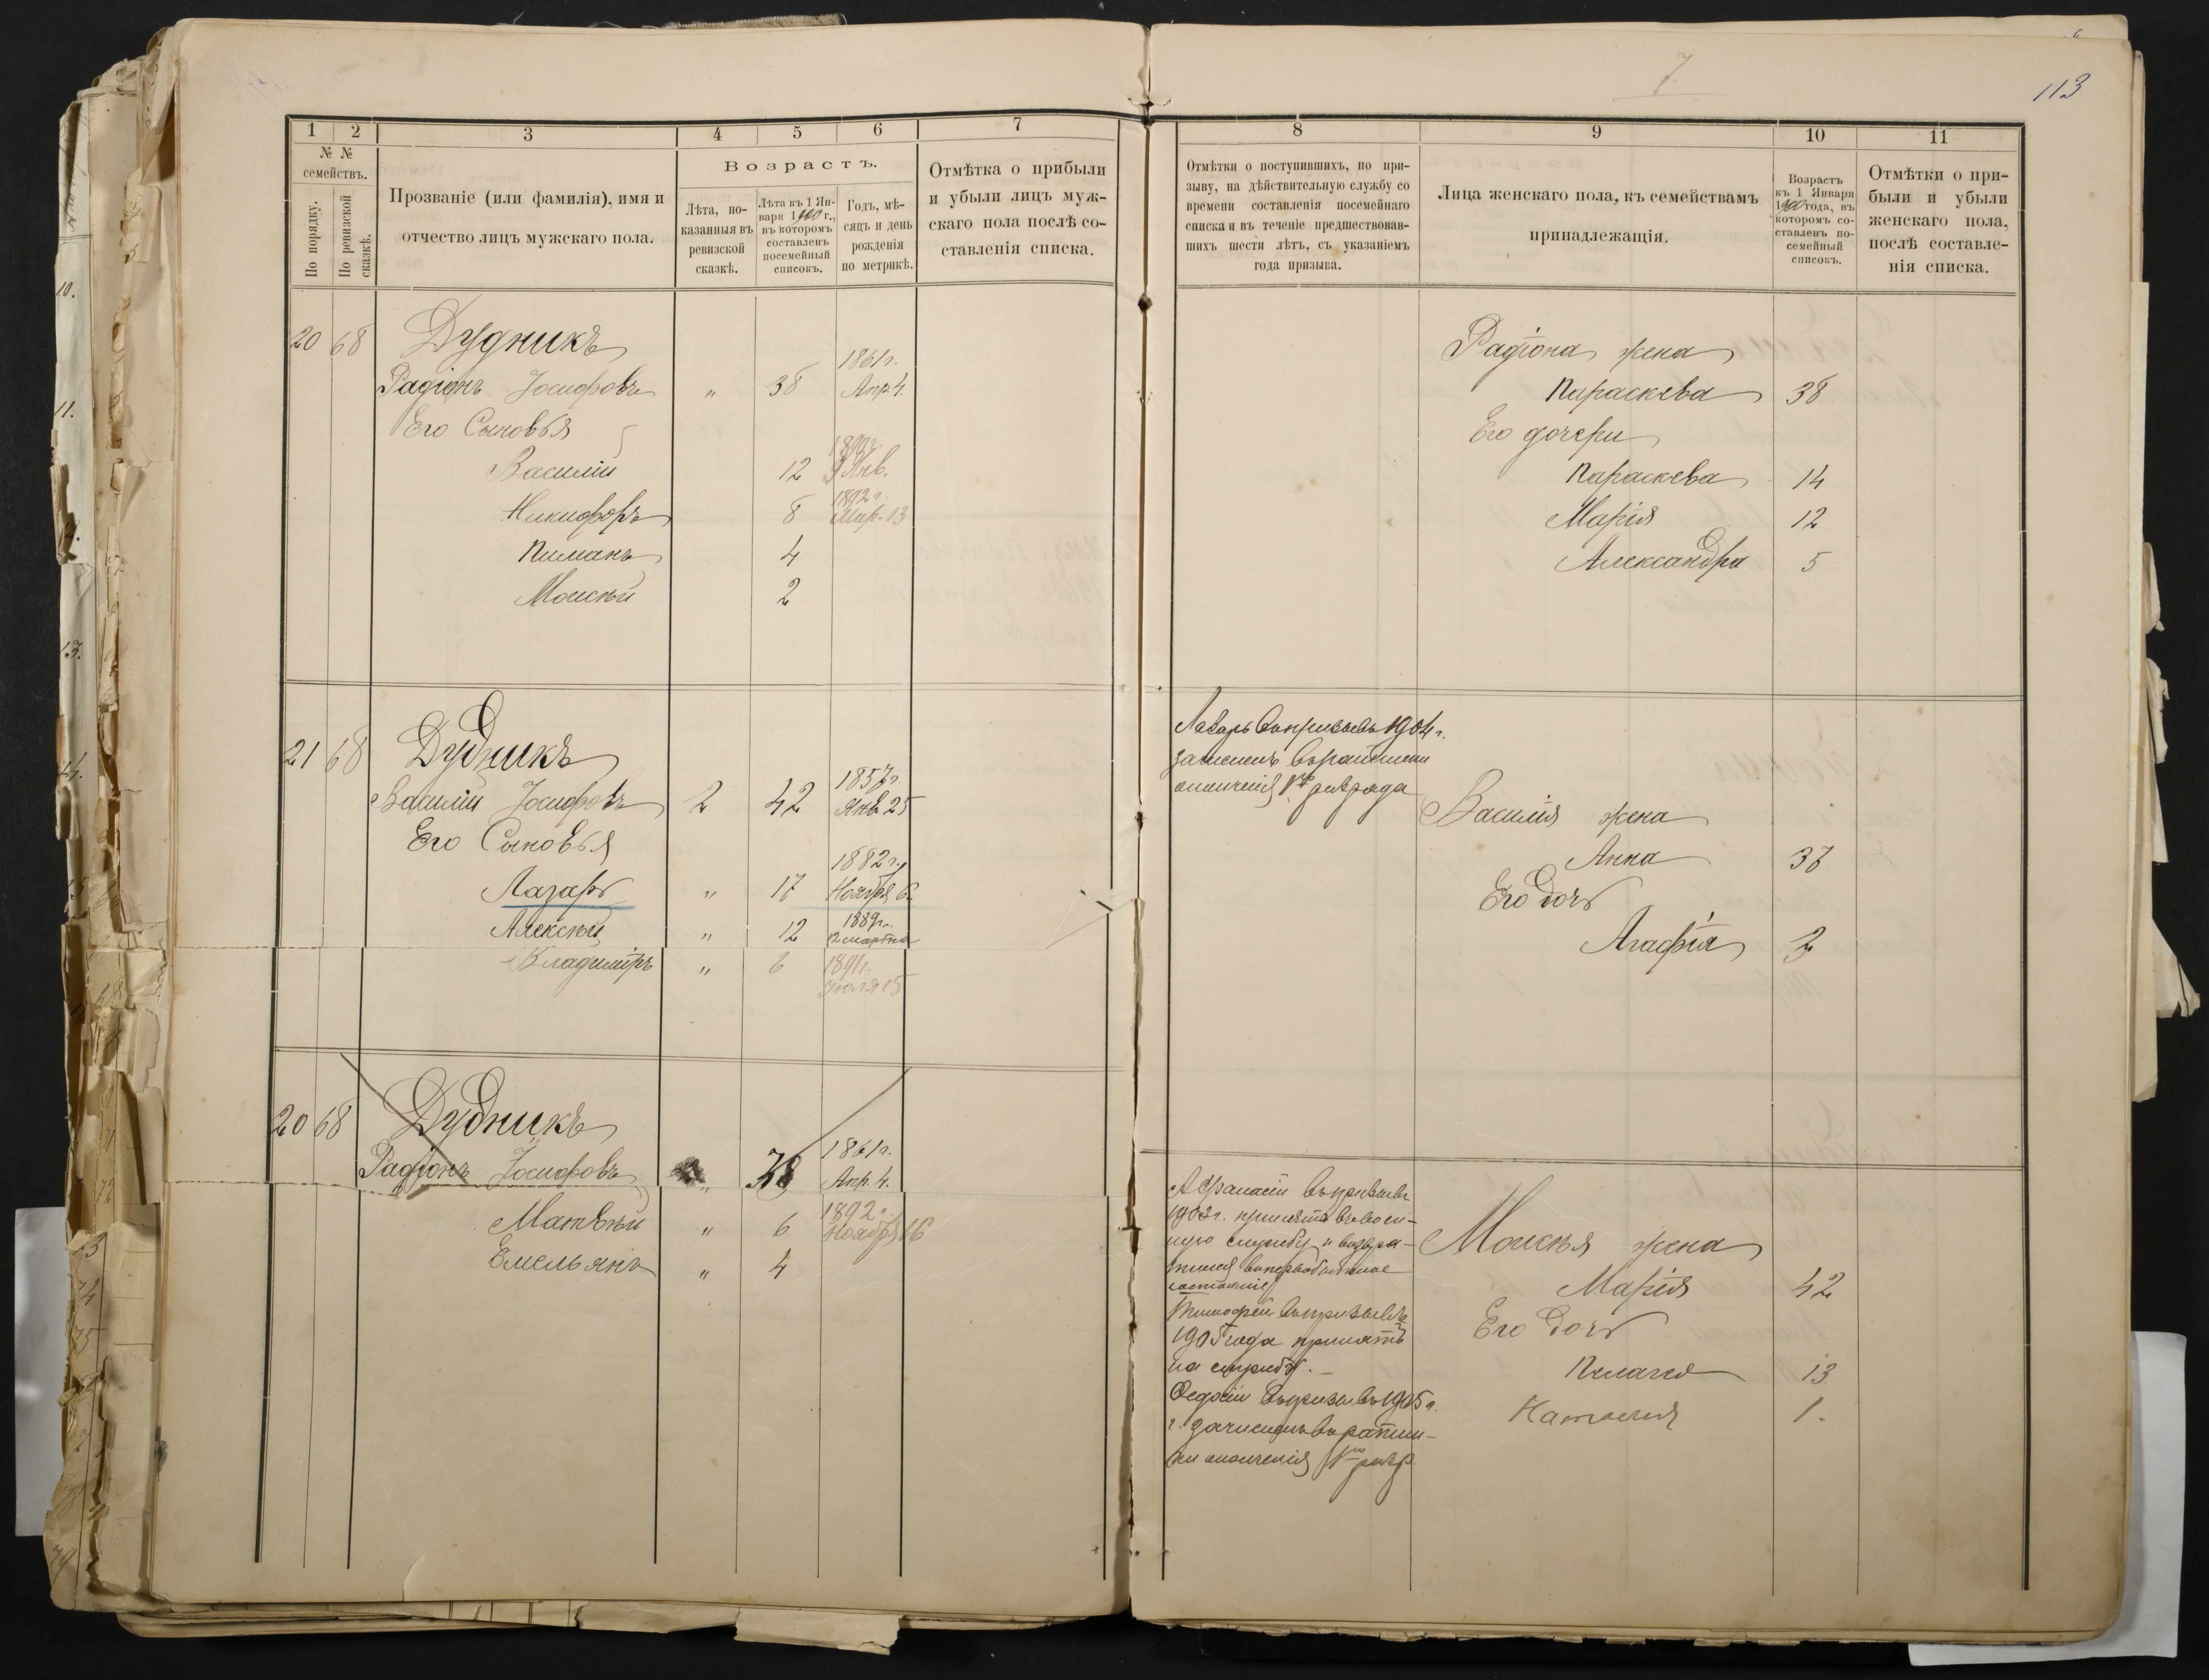 7
113
1 2 3 4 5 6 7
№ №
семействъ.
По порядку.
По ревизской
сказкѣ.
Прозваніе (или фамилія), имя и
отчество лицъ мужскаго пола.
Возрастъ.
Лѣта, по-
казанныя въ
ревизской
сказкѣ.
Лѣта къ 1 Ян-
варя 1900 г.,
въ которомъ
составленъ
посемейный
списокъ.
Годъ, мѣ-
сяцъ и день
рожденія
по метрикѣ.
Отмѣтка о прибыли
и убыли лицъ муж-
скаго пола послѣ со-
ставленія списка.
20 68 Дудникъ
1861 г.
Радіонъ Іосифовъ " 38 Апр. 4.
Его Сыновья
Василій 12 Янв.
1892 г.
Никифоръ 8 Мар. 13
Пиманъ 4
Моисѣй 2
21 68 Дудникъ
1857 г.
Василій Іосифовъ 2 42 Янв. 25
Его Сыновья
1882 г.
Лазарь " 17 Ноября 6
1889 г.
Алексѣй " 12 2 марта
Владиміръ " 6 1891 г.
Іюля 15
20 68 Дудникъ
1861 г.
Радіонъ Іосифовъ " 38 Апр. 4.
1892 г.
Матвѣй " 6 Ноября 16
Емельянъ " 4
8 9 10 11
Отмѣтки о поступившихъ, по при-
зыву, на дѣйствительную службу со
времени составленія посемейнаго
списка и въ теченіе предшествовав-
шихъ шести лѣтъ, съ указаніемъ
года призыва.
Лица женскаго пола, къ семействамъ
принадлежащія.
Возрастъ
къ 1 Января
1900 года, въ
которомъ со-
ставленъ по-
семейный
списокъ.
Отмѣтки о при-
были и убыли
женскаго пола,
послѣ составле-
нія списка.
Радіона жена
Параскева 38
Его дочери
Параскева 14
Марія 12
Александра 5
Лазарь въ призывъ 1904 г.
зачисленъ въ ратники
ополченія 1го разряда
Василія жена
Анна 37
Его дочь
Агафія 2
Афанасій въ призывъ
1903 г. принятъ въ воен-
ную службу и возвра-
тился въ первобытное
состояніе
Тимофей въ призывъ
1905 года принятъ
на службу. –
Ѳедосій въ призывъ 1905 г.
г. зачисленъ въ ратни-
ки ополченія 1го разр.
Моисѣя жена
Марія 42
Его дочь
Пелагея 13
Наталія 1.